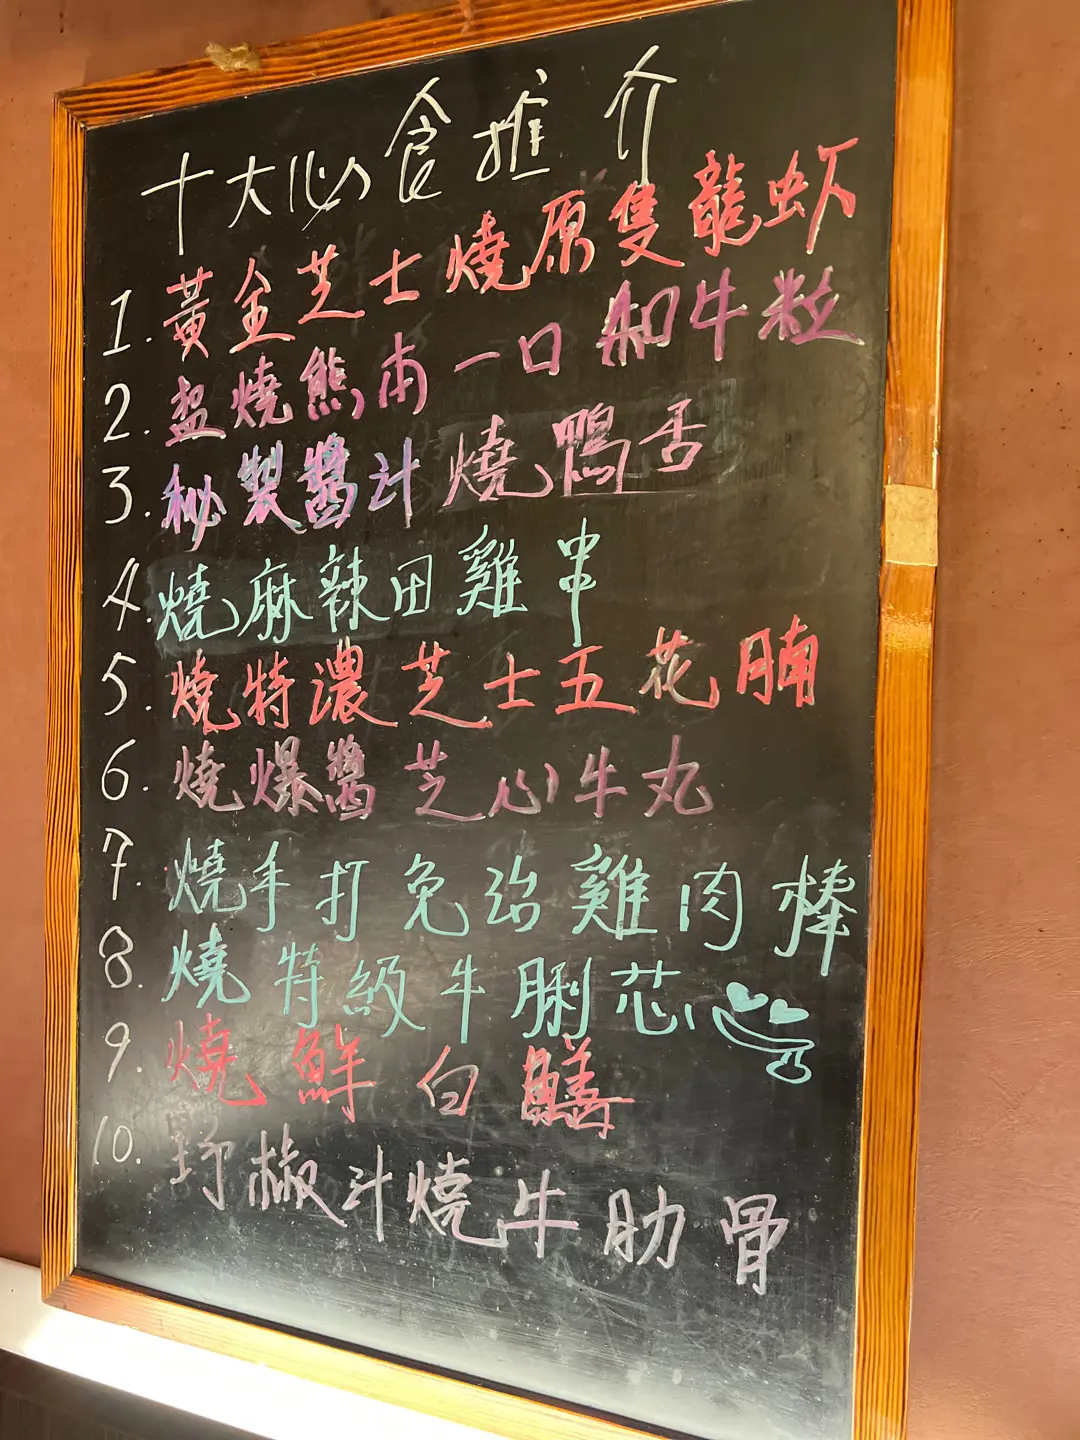 十大必食推介
1. 黃金芝士燒原隻龍虾
2. 盐燒熊本一口和牛粒
3. 秘製醬汁燒鴨舌
4. 燒麻辣田雞串
5. 燒特濃芝士五花腩
6. 燒爆醬芝心牛丸
7. 燒手打免治雞肉棒
8. 燒特級牛脷芯
9. 燒鮮白鱔
10. 野椒汁燒牛肋骨